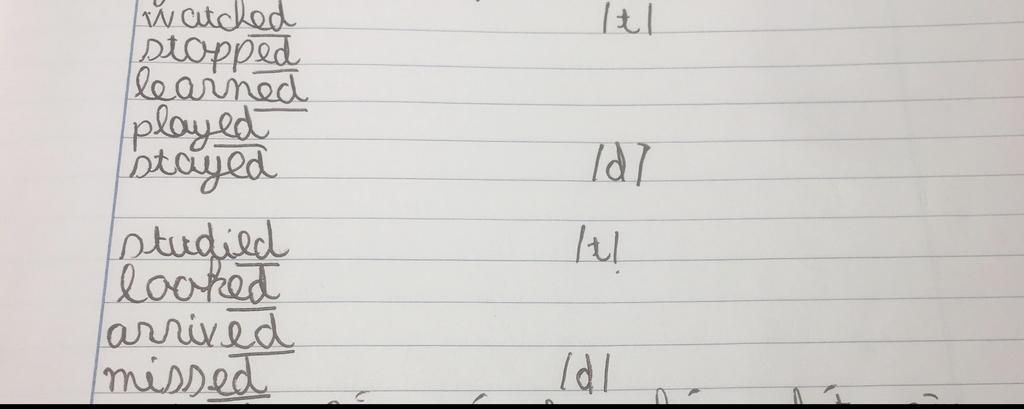 watched /t/
stopped
learned
played
stayed /d/
studied /t/
looked
arrived
missed /d/